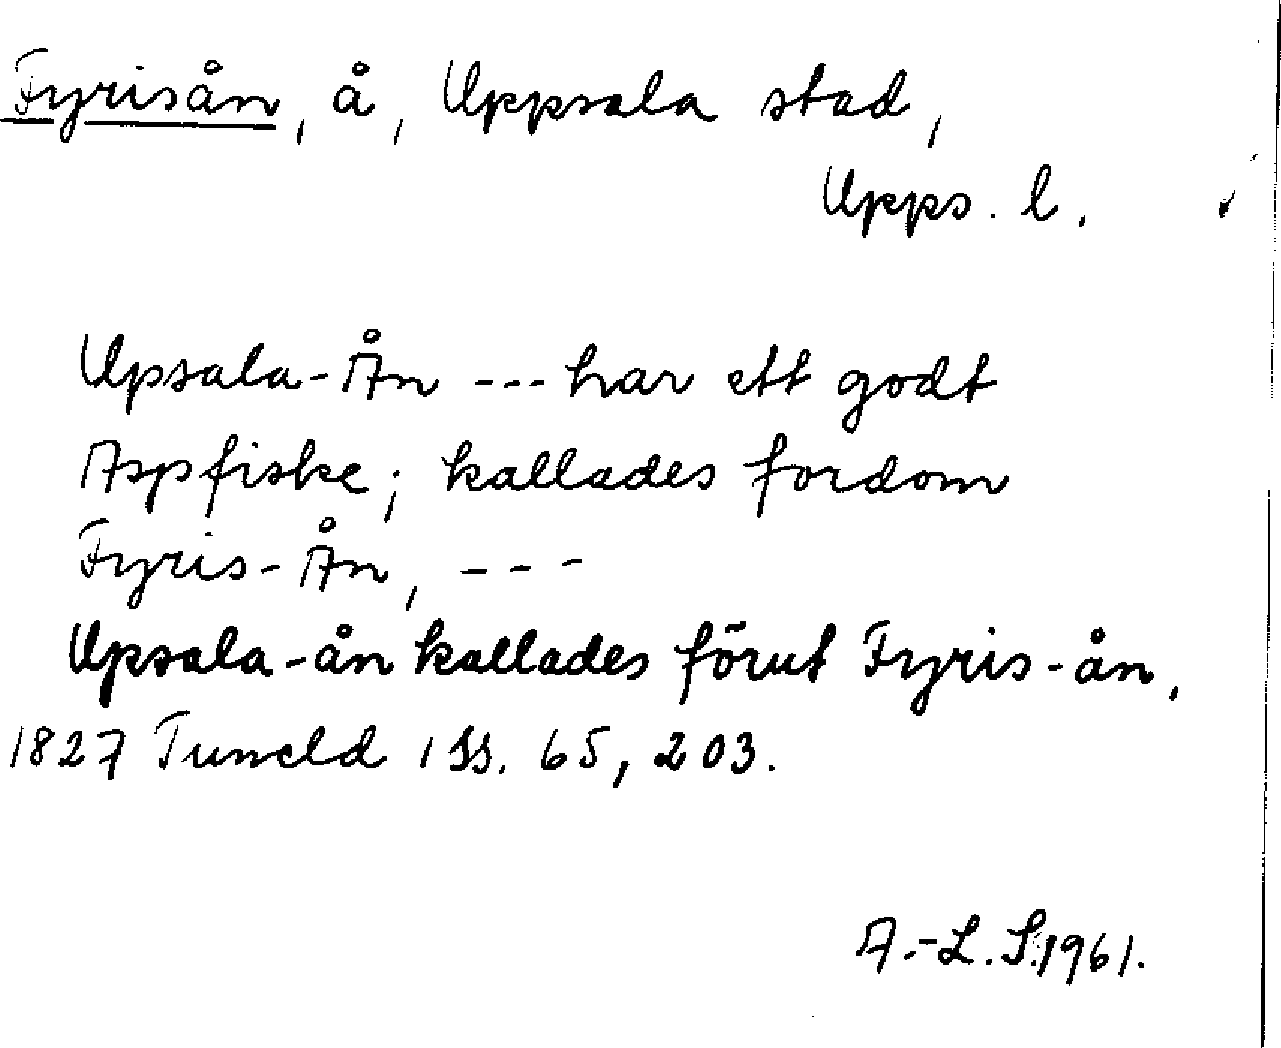 Fyrisån, å, Uppsala stad,
Upps. l.
Upsala-Ån --- har ett godt
Aspfiske; kallades fordom
Fyris-Ån, ---
Upsala-ån kallades förut Fyris-ån,
1827 Tuneld 1 ss. 65, 203.
A.-L. S. 1961.